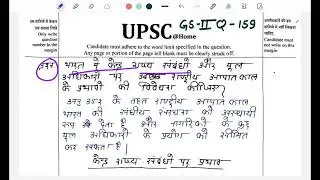 UPSC
@Home
GS-II Q-159
Candidate must adhere to the word limit specified in the question.
Any page or portion of the page left blank must be clearly struck off.
Candidate must not write on this margin
भारत में केन्द्र राज्य संबंधों और मूल
अधिकारों पर राष्ट्रीय आपातकाल
के प्रभावों की विवेचना कीजिए?
अनु० 352 के तहत राष्ट्रीय आपात काल
भारत की संघीय संरचना को अस्थायी
रूप देता है और नागरिकों के कुछ
मूल अधिकारों के प्रयोग को सीमित
कर सकता है।
केन्द्र राज्य संबंधों पर प्रभाव